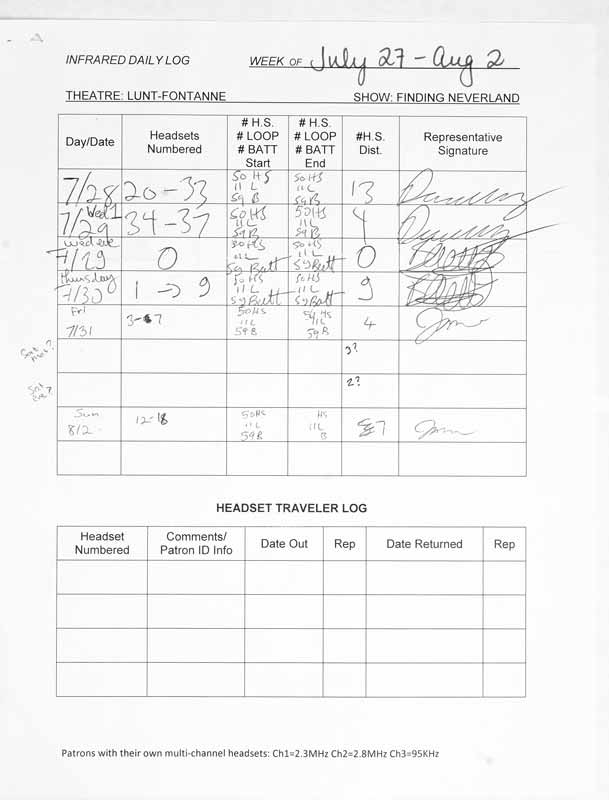 INFRARED DAILY LOG WEEK OF July 27 - Aug 2
THEATRE: LUNT-FONTANNE SHOW: FINDING NEVERLAND
Day/Date Headsets Numbered # H.S. # LOOP # BATT Start # H.S. # LOOP # BATT End #H.S. Dist. Representative Signature
7/28 20-33 50 HS 11 L 59 B 50HS 11L 59B 13
Wed 7/29 34-37 50HS 11L 59B 50HS 11L 59B 4
wed eve 7/29 0 50HS 11L 59 Batt 50HS 11L 59 Batt 0
Thursday 7/30 1 → 9 50HS 11L 59 Batt 50HS 11L 59 Batt 9
Fri 7/31 3-7 50HS 11L 59B HS 11L 59B 4
Sat mat? 3?
Sat eve? 2?
Sun 8/2 12-18 50HS 11L 59B HS 11L B 7
HEADSET TRAVELER LOG
Headset Numbered Comments/ Patron ID Info Date Out Rep Date Returned Rep
Patrons with their own multi-channel headsets: Ch1=2.3MHz Ch2=2.8MHz Ch3=95KHz